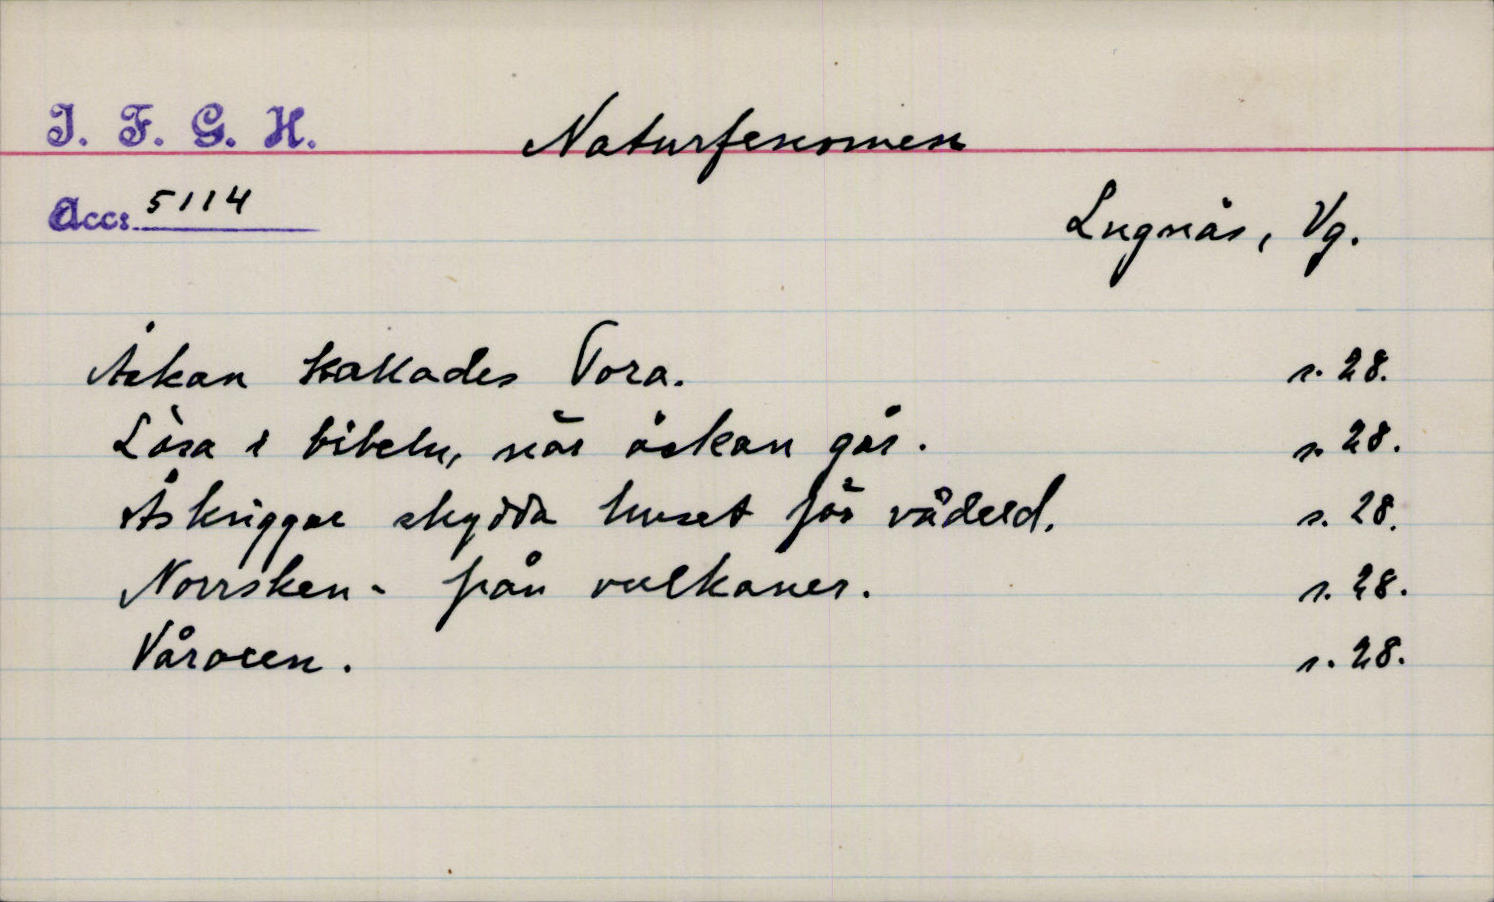 I. F. G. H.
Naturfenomen
Acc: 5114
Lugnås, Vg.
Åskan kallades Tora. s. 28.
Läsa i bibeln, när åskan går. s. 28.
Åskviggar skydda huset för vådeld. s. 28.
Norrsken - från vulkaner. s. 28.
Våroxen. s. 28.